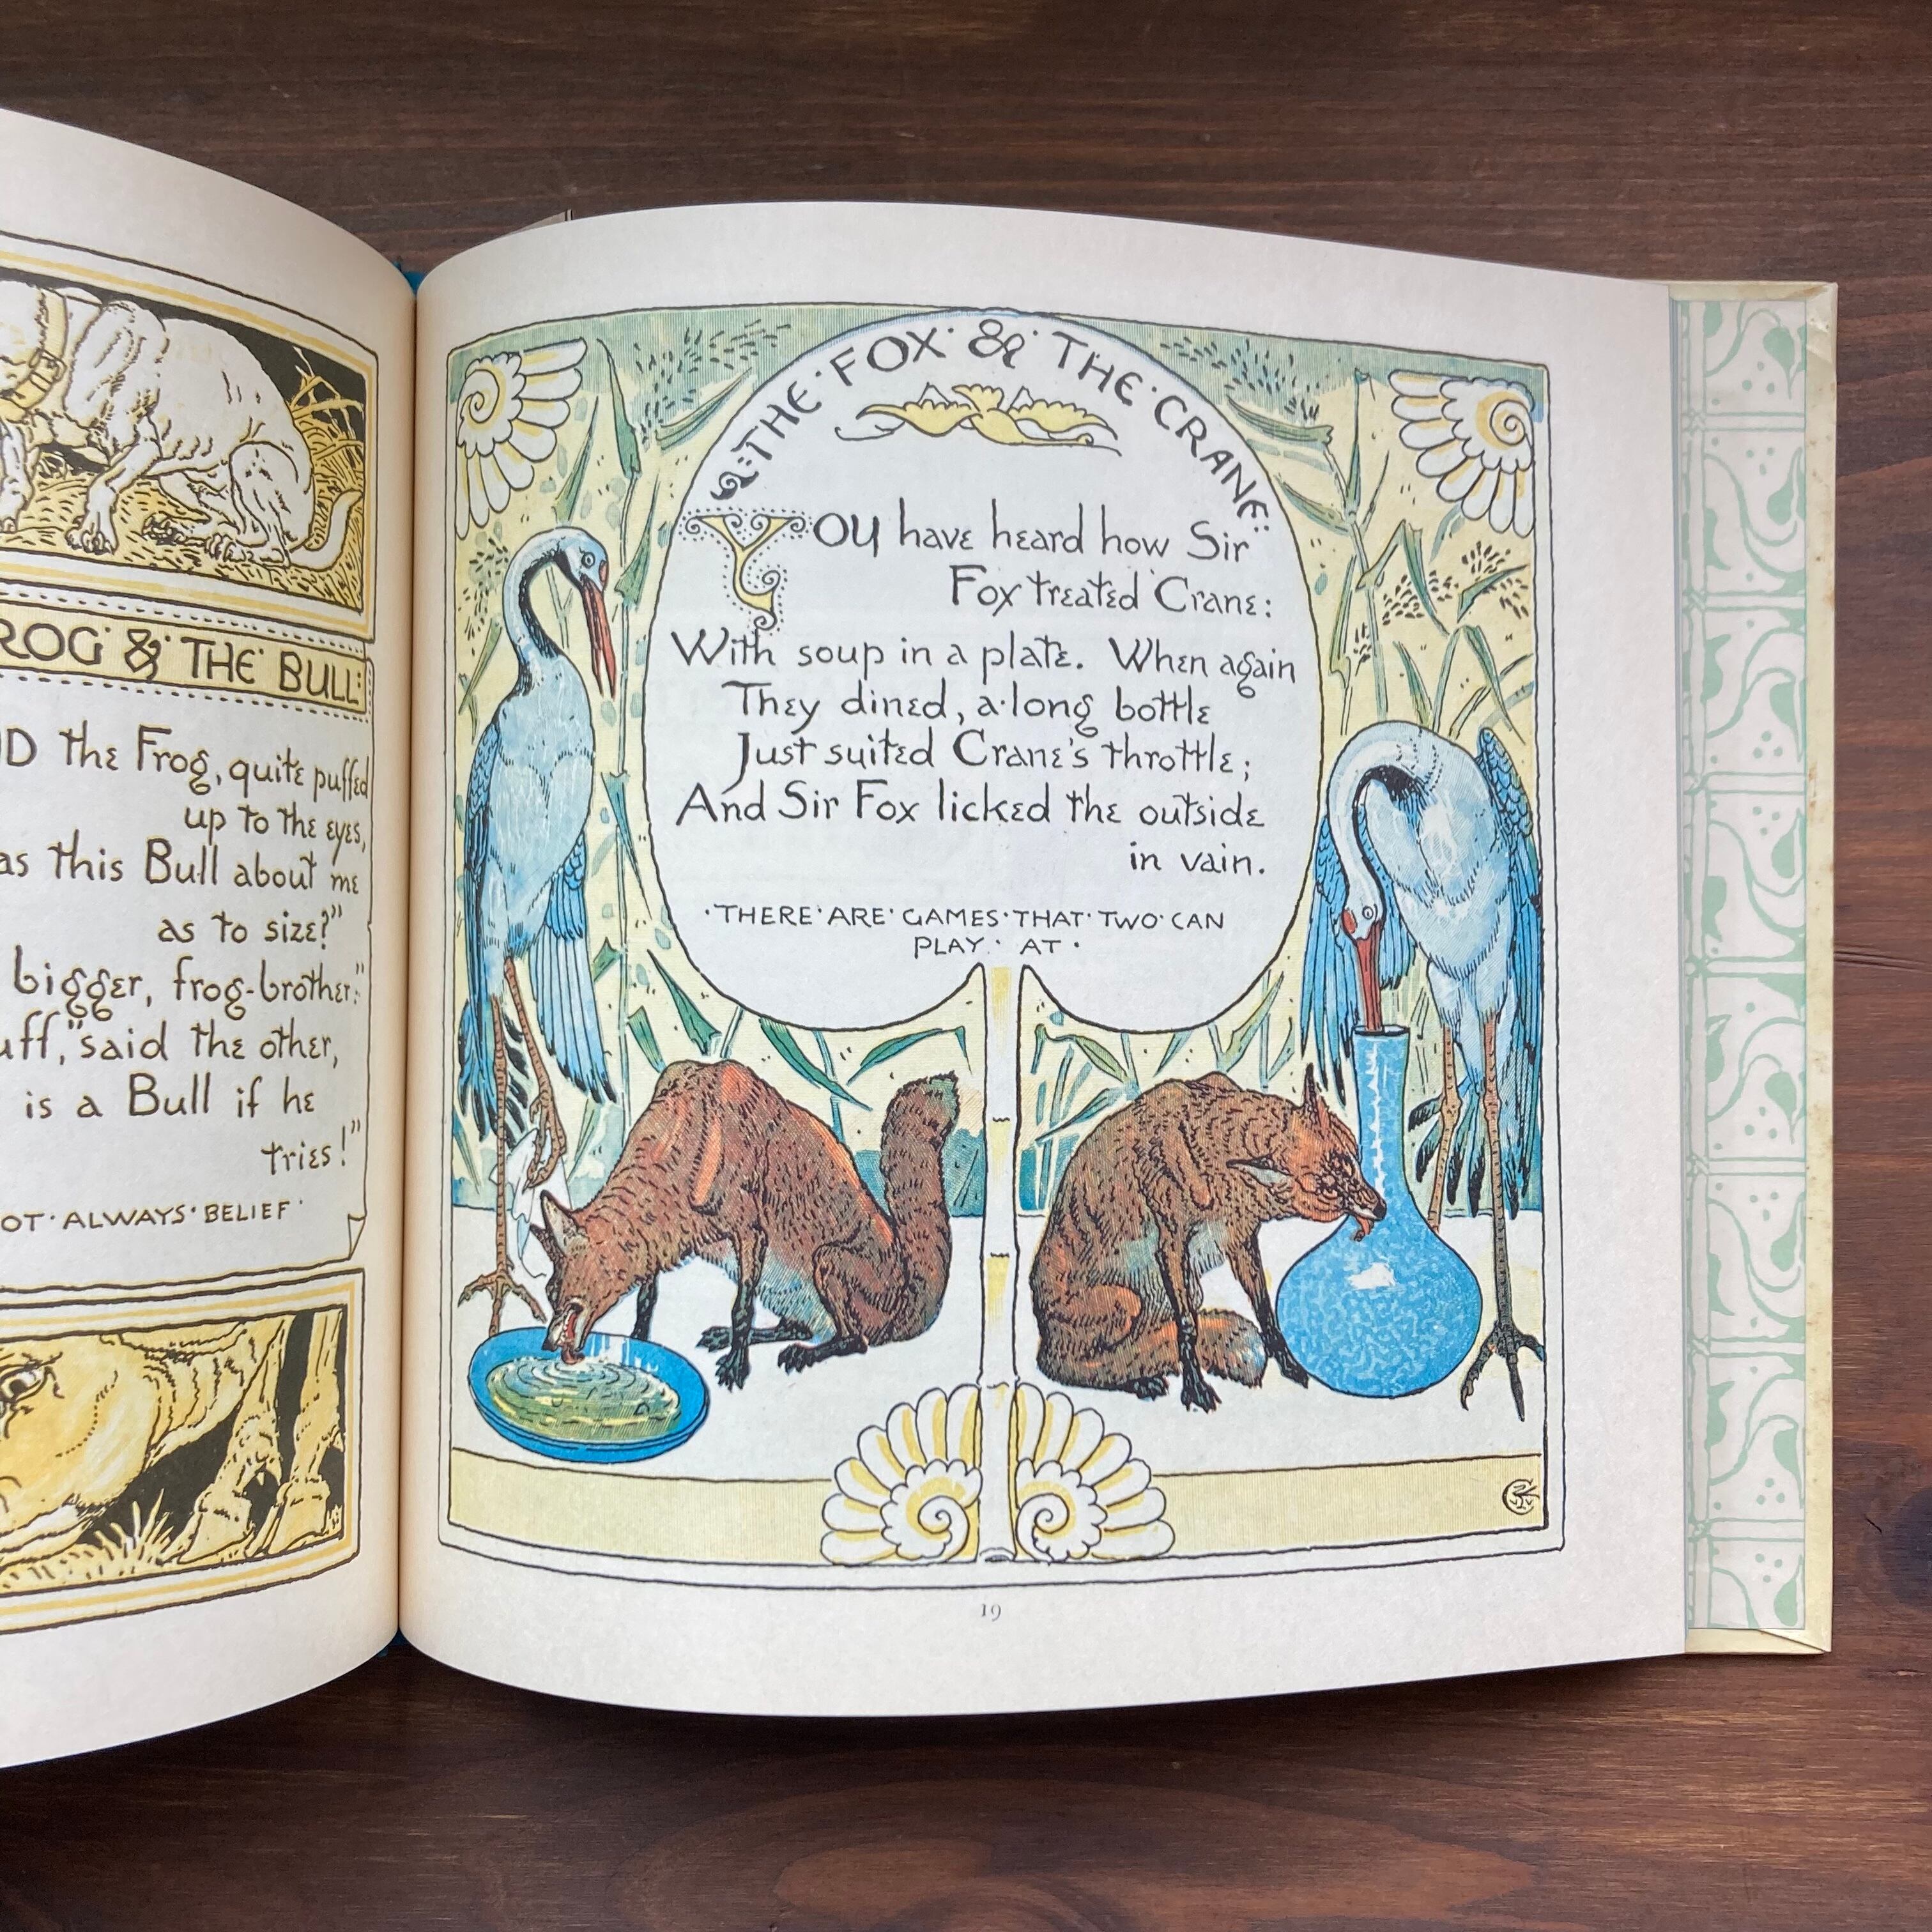 ROG & THE BULL:
the Frog, quite puffed
up to the eyes,
as this Bull about me
as to size?"
bigger, frog-brother:"
said the other,
is a Bull if he
tries!"
ALWAYS BELIEF
THE FOX & THE CRANE:
YOU have heard how Sir
Fox treated Crane:
With soup in a plate. When again
They dined, a long bottle
Just suited Crane's throttle;
And Sir Fox licked the outside
in vain.
THERE ARE GAMES THAT TWO CAN
PLAY AT
19